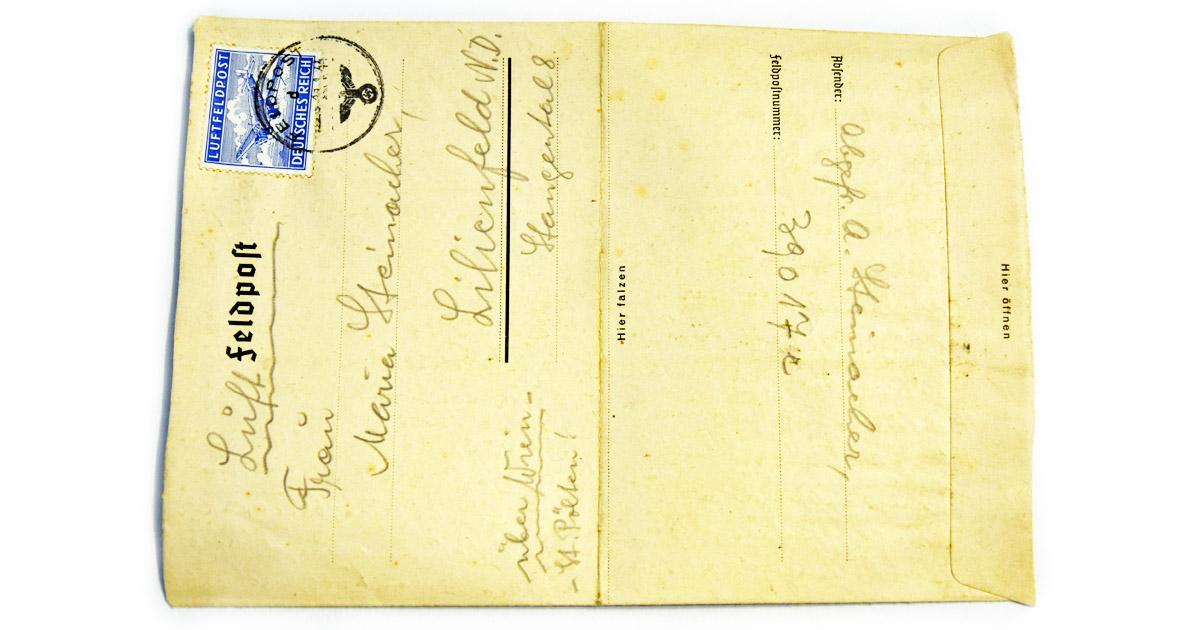 LUFTFELDPOST
DEUTSCHES REICH
FELDPOST
d
Luft Feldpost
Frau
Maria Steinacher,
Lilienfeld N.D.
Stangental 8
über Wien-
-St. Pölten!
Hier falzen
Absender:
Obgefr. A. Steinacher,
Feldpostnummer:
39017
Hier öffnen